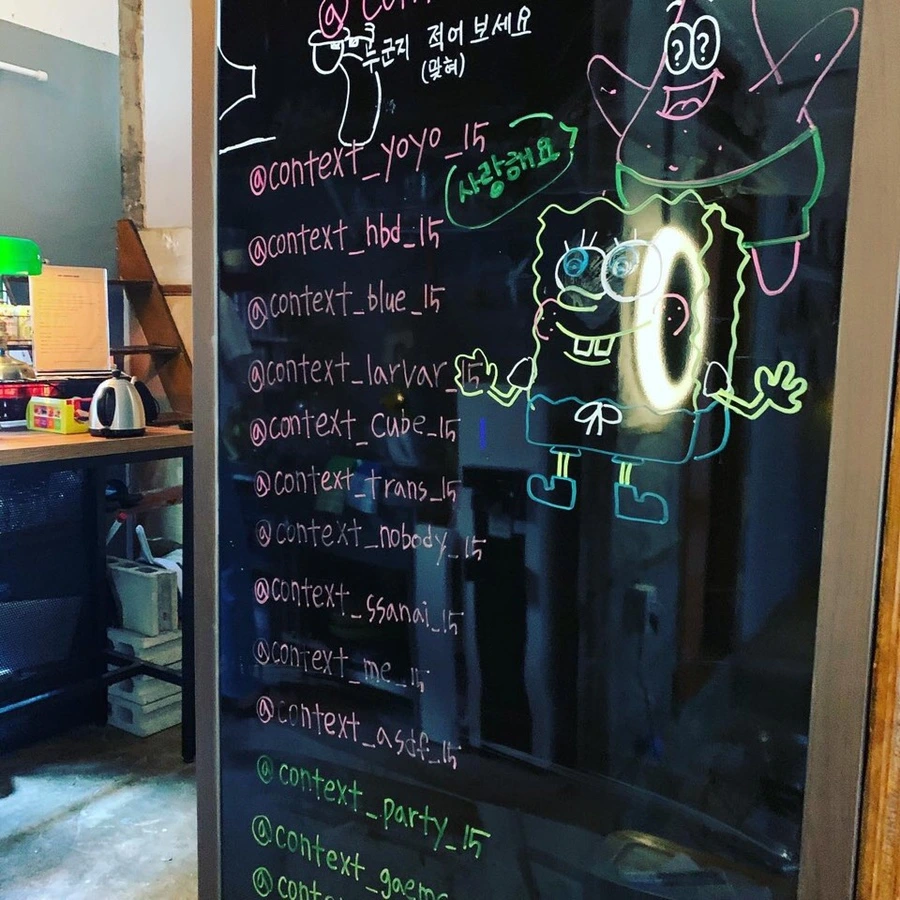 @con
누군지 적어 보세요
(맞혀)
@context_yoyo_15
사랑해요
@context_hbd_15
@context_blue_15
@context_larvar_15
@context_cube_15
@context_trans_15
@context_nobody_15
@context_ssanai_15
@context_me_15
@context_asdf_15
@context_party_15
@context_gaeme
@conte